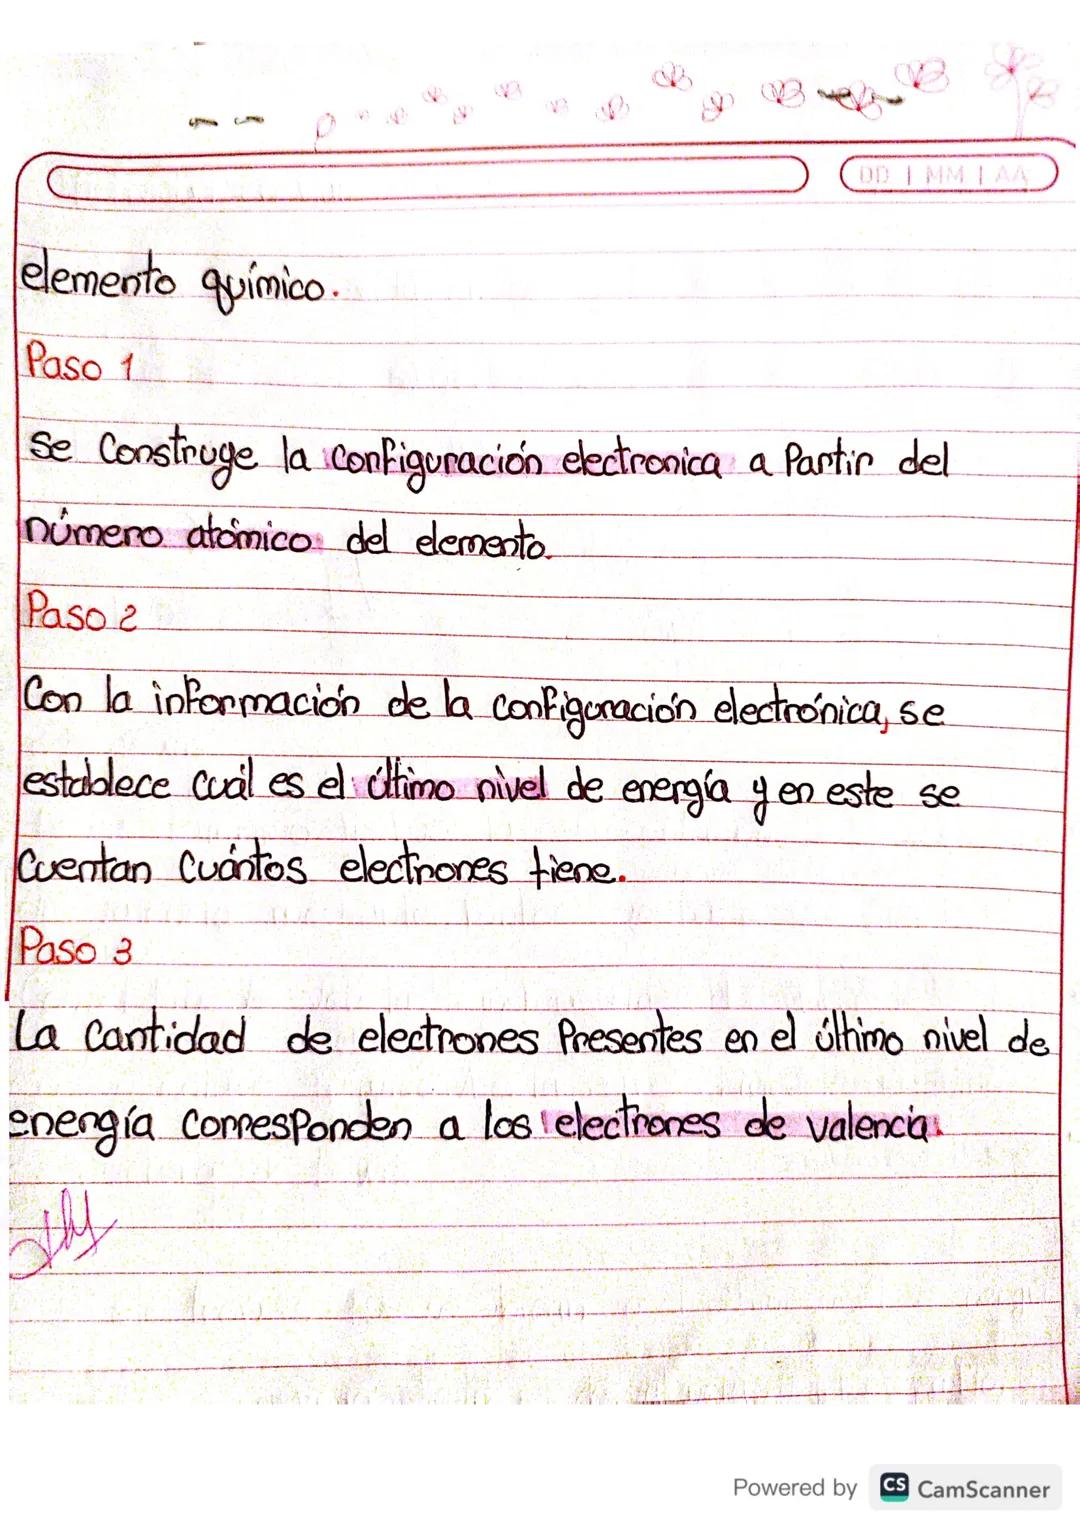 DD | MM | AA
elemento químico.
Paso 1
se Construye la configuración electronica a Partir del
número atómico del elemento.
Paso 2
Con la información de la configuración electrónica, se
establece cuál es el último nivel de energía y en este se
Cuentan Cuántos electrones tiene.
Paso 3
La Cantidad de electrones Presentes en el último nivel de
energía corresponden a los electrones de valencia.
Powered by CS CamScanner